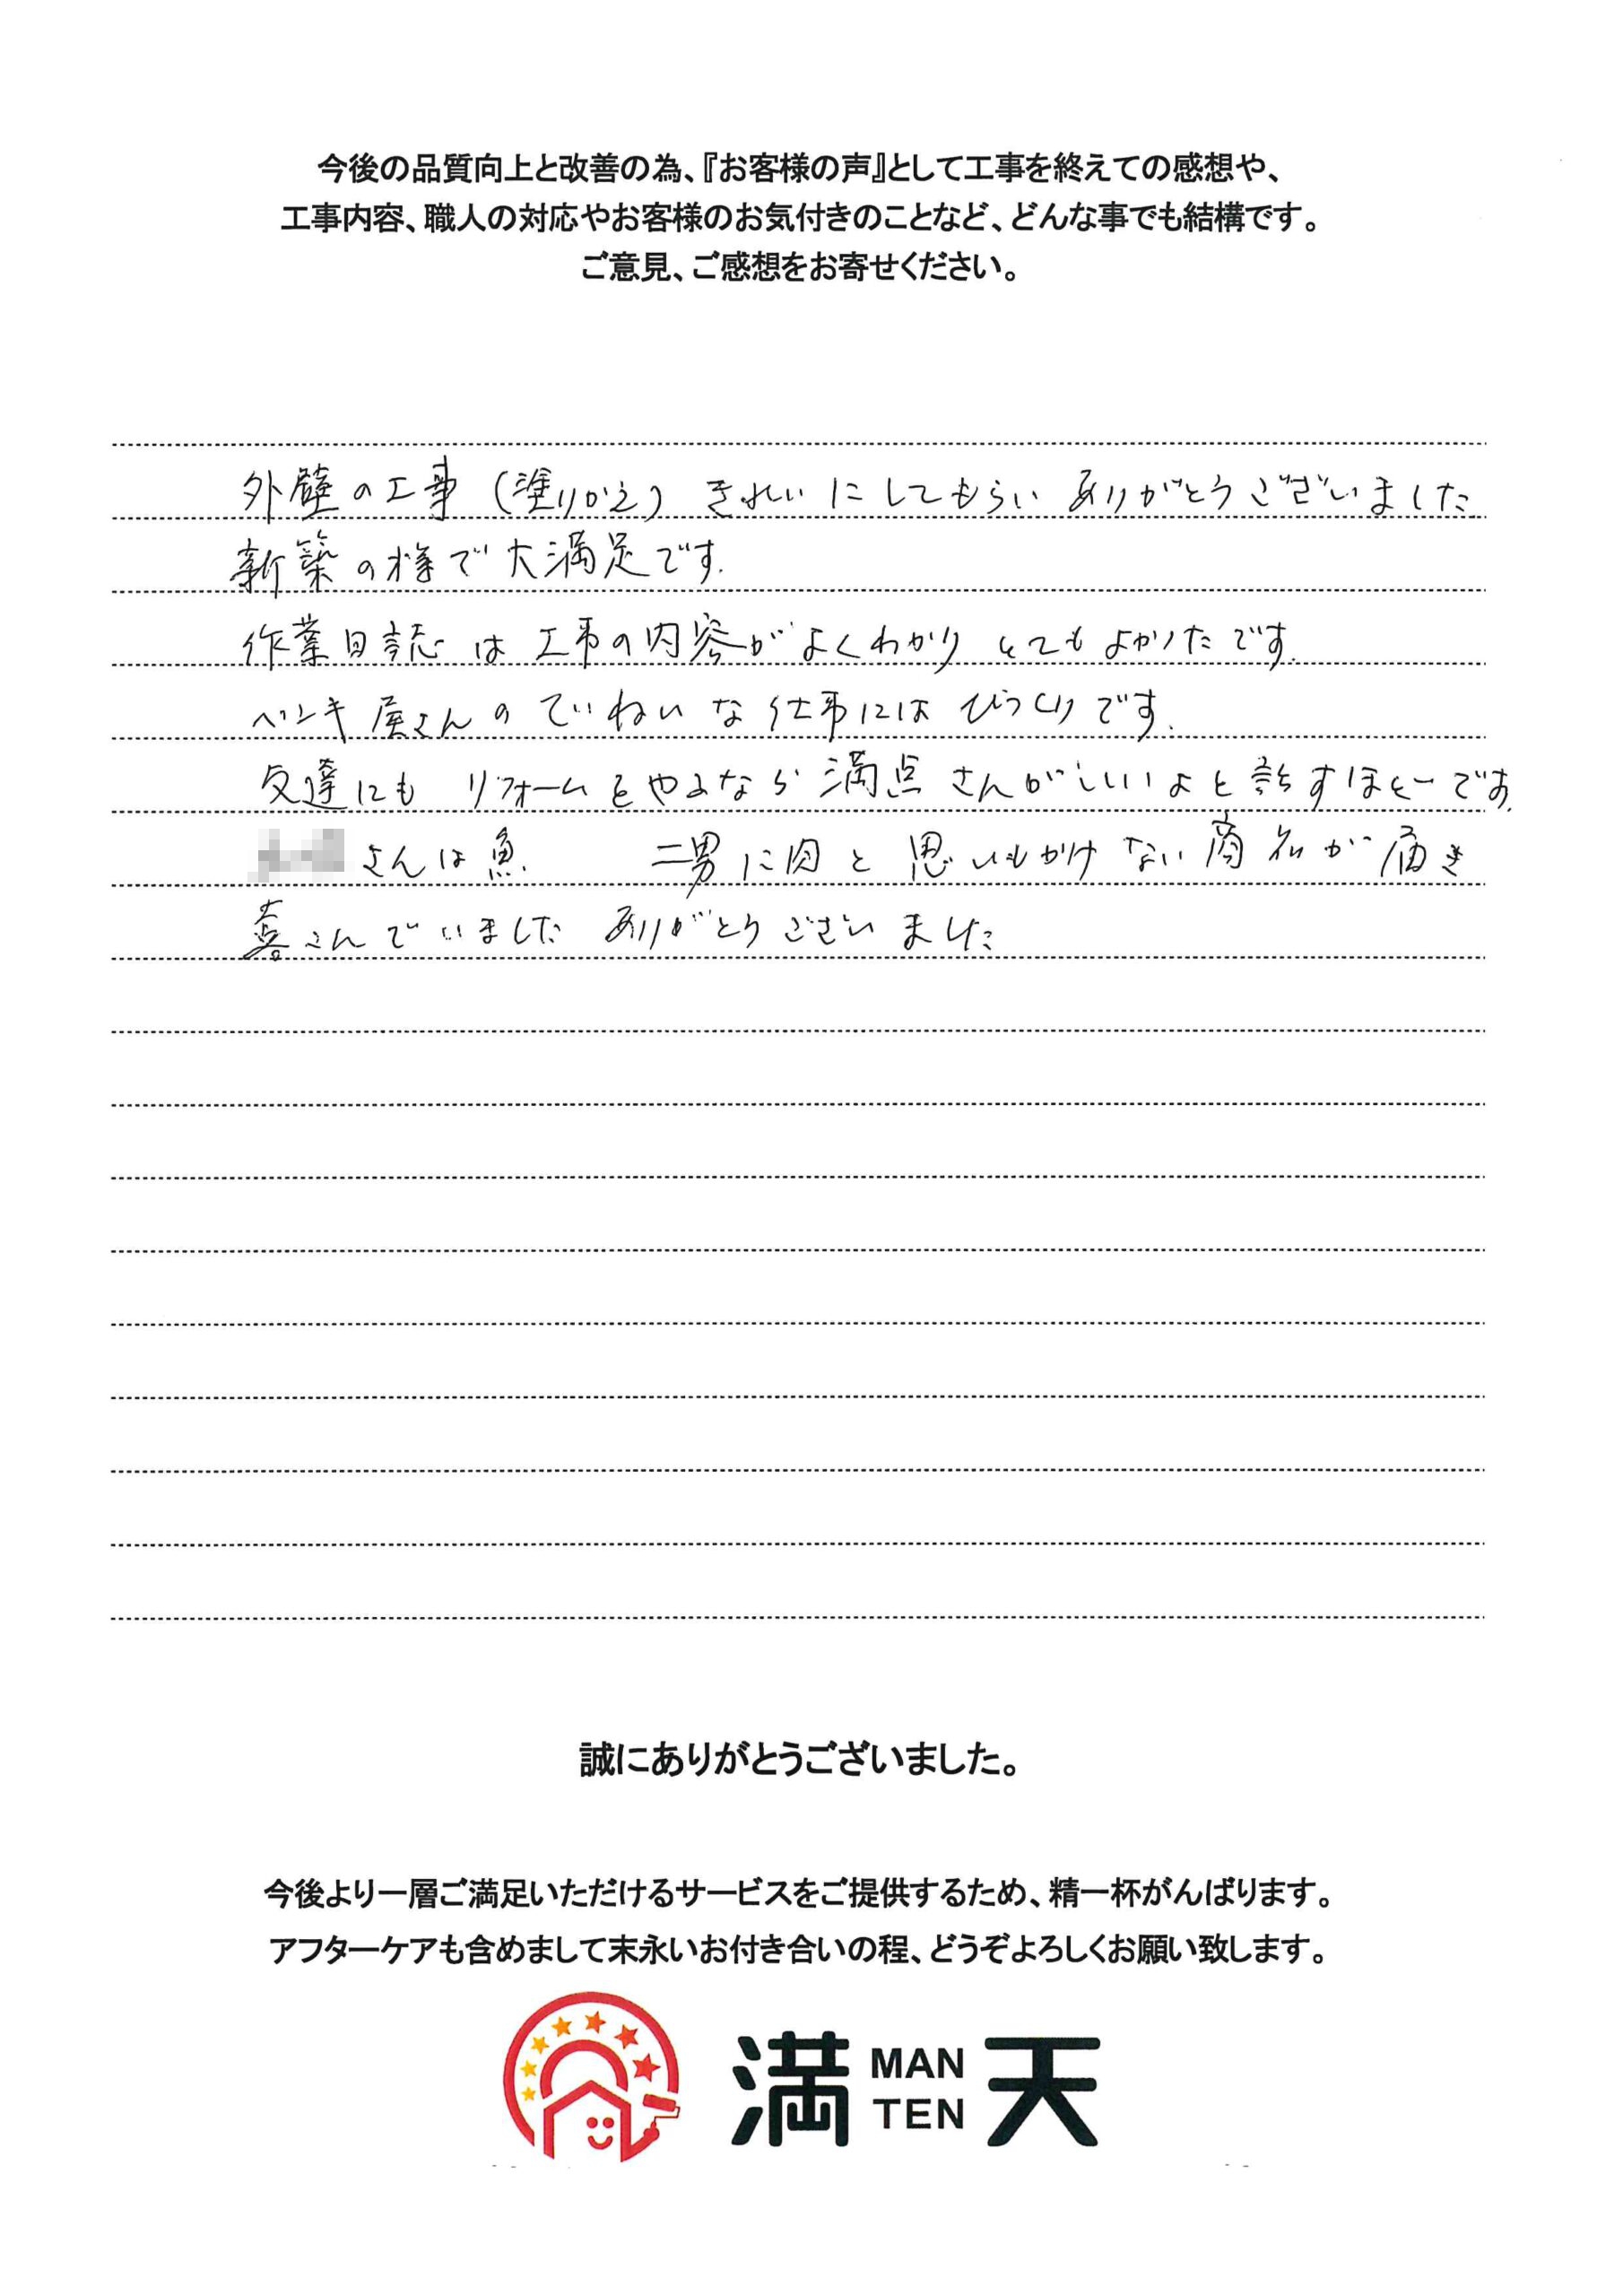 今後の品質向上と改善の為、『お客様の声』として工事を終えての感想や、
工事内容、職人の対応やお客様のお気付きのことなど、どんな事でも結構です。
ご意見、ご感想をお寄せください。
外壁の工事(塗りかえ)きれいにしてもらいありがとうございました
新築の様で大満足です.
作業日誌は工事の内容がよくわかりとてもよかったです.
ペンキ屋さんのていねいな仕事にはびっくりです.
友達にもリフォームをやるなら満点さんがいいよと話すほどです.
さんは魚 二男に肉と思いもかけない商品が届き
喜こんでいましたありがとうございました
誠にありがとうございました。
今後より一層ご満足いただけるサービスをご提供するため、精一杯がんばります。
アフターケアも含めまして末永いお付き合いの程、どうぞよろしくお願い致します。
満 MAN TEN 天